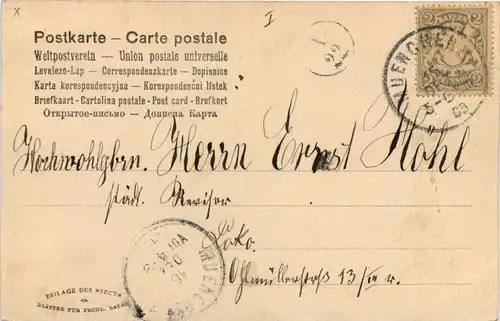 Postkarte – Carte postale
Weltpostverein – Union postale universelle
Levelező-Lap – Correspondenzkarte – Dopisnice
Karta korespondencyjna – Korespondenční lístek
Briefkaart – Cartolina postale – Post card – Brefkort
Открытое-письмо – Дописна Карта
I
22
2 BAYERN 2
MUENCHEN
Hochwohlgbrn. Herrn Ernst Hohl
städt. Revisor
Loko.
Ohlmüllerstraß 13/III r.
MUENCHEN
BEILAGE DES »SECT«
BLÄTTER FÜR FROHL. LAUNE